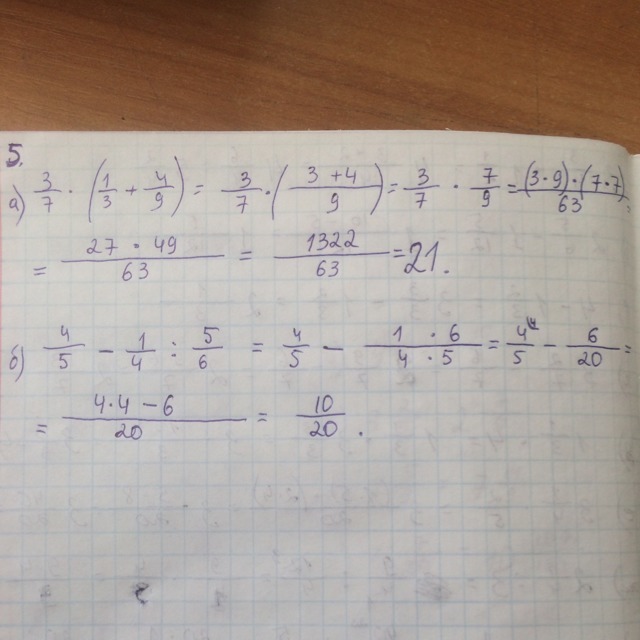 5.
а) 3/7 · (1/3 + 4/9) = 3/7 · (3+4/9) = 3/7 · 7/9 = (3·9)·(7·7)/63 =
= 27·49/63 = 1322/63 = 21.
б) 4/5 − 1/4 : 5/6 = 4/5 − 1·6/4·5 = 4^4/5 − 6/20 =
= 4·4−6/20 = 10/20.